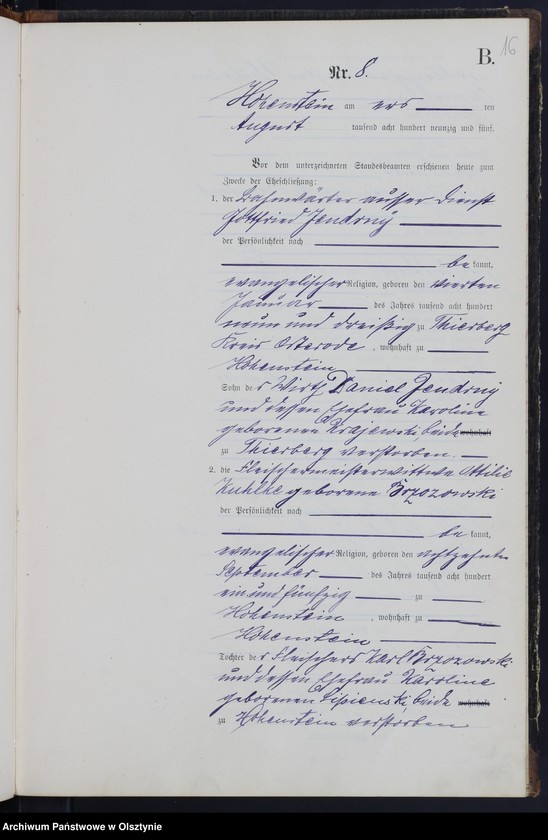 16
B.
Nr. 8.
Hohenstein am ers ten
August tausend acht hundert neunzig und fünf.
Vor dem unterzeichneten Standesbeamten erschienen heute zum
Zwecke der Eheschließung:
1. der Bahnwärter ausser Dienst
Gottfried Jendrny
der Persönlichkeit nach
be kannt,
evangelischer Religion, geboren den vierten
Januar des Jahres tausend acht hundert
neun und dreißig zu Thierberg
Kreis Osterode, wohnhaft zu
Hohenstein
Sohn des Wirth Daniel Jendrny
und dessen Ehefrau Karoline
geborenen Krajewski, beide wohnhaft
zu Thierberg verstorben.
2. die Fleischermeisterwittwe Ottilie
geborene Brzozowski
der Persönlichkeit nach
be kannt,
evangelischer Religion, geboren den achtzehnten
September des Jahres tausend acht hundert
ein und fünfzig zu
Hohenstein, wohnhaft zu
Hohenstein
Tochter des Fleischers Karl Brzozowski
und dessen Ehefrau Karoline
geborenen beide wohnhaft
zu Hohenstein verstorben
Archiwum Państwowe w Olsztynie